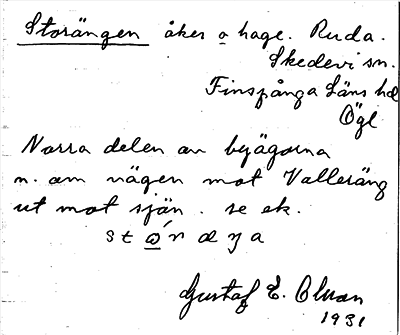 Storängen åker o hage. Ruda.
Skedevi sn.
Finspånga Läns hd
Ögl
Norra delen av byägorna
n. om vägen mot Valleräng
ut mot sjön. se ek.
Gustaf E. Olsson
1931